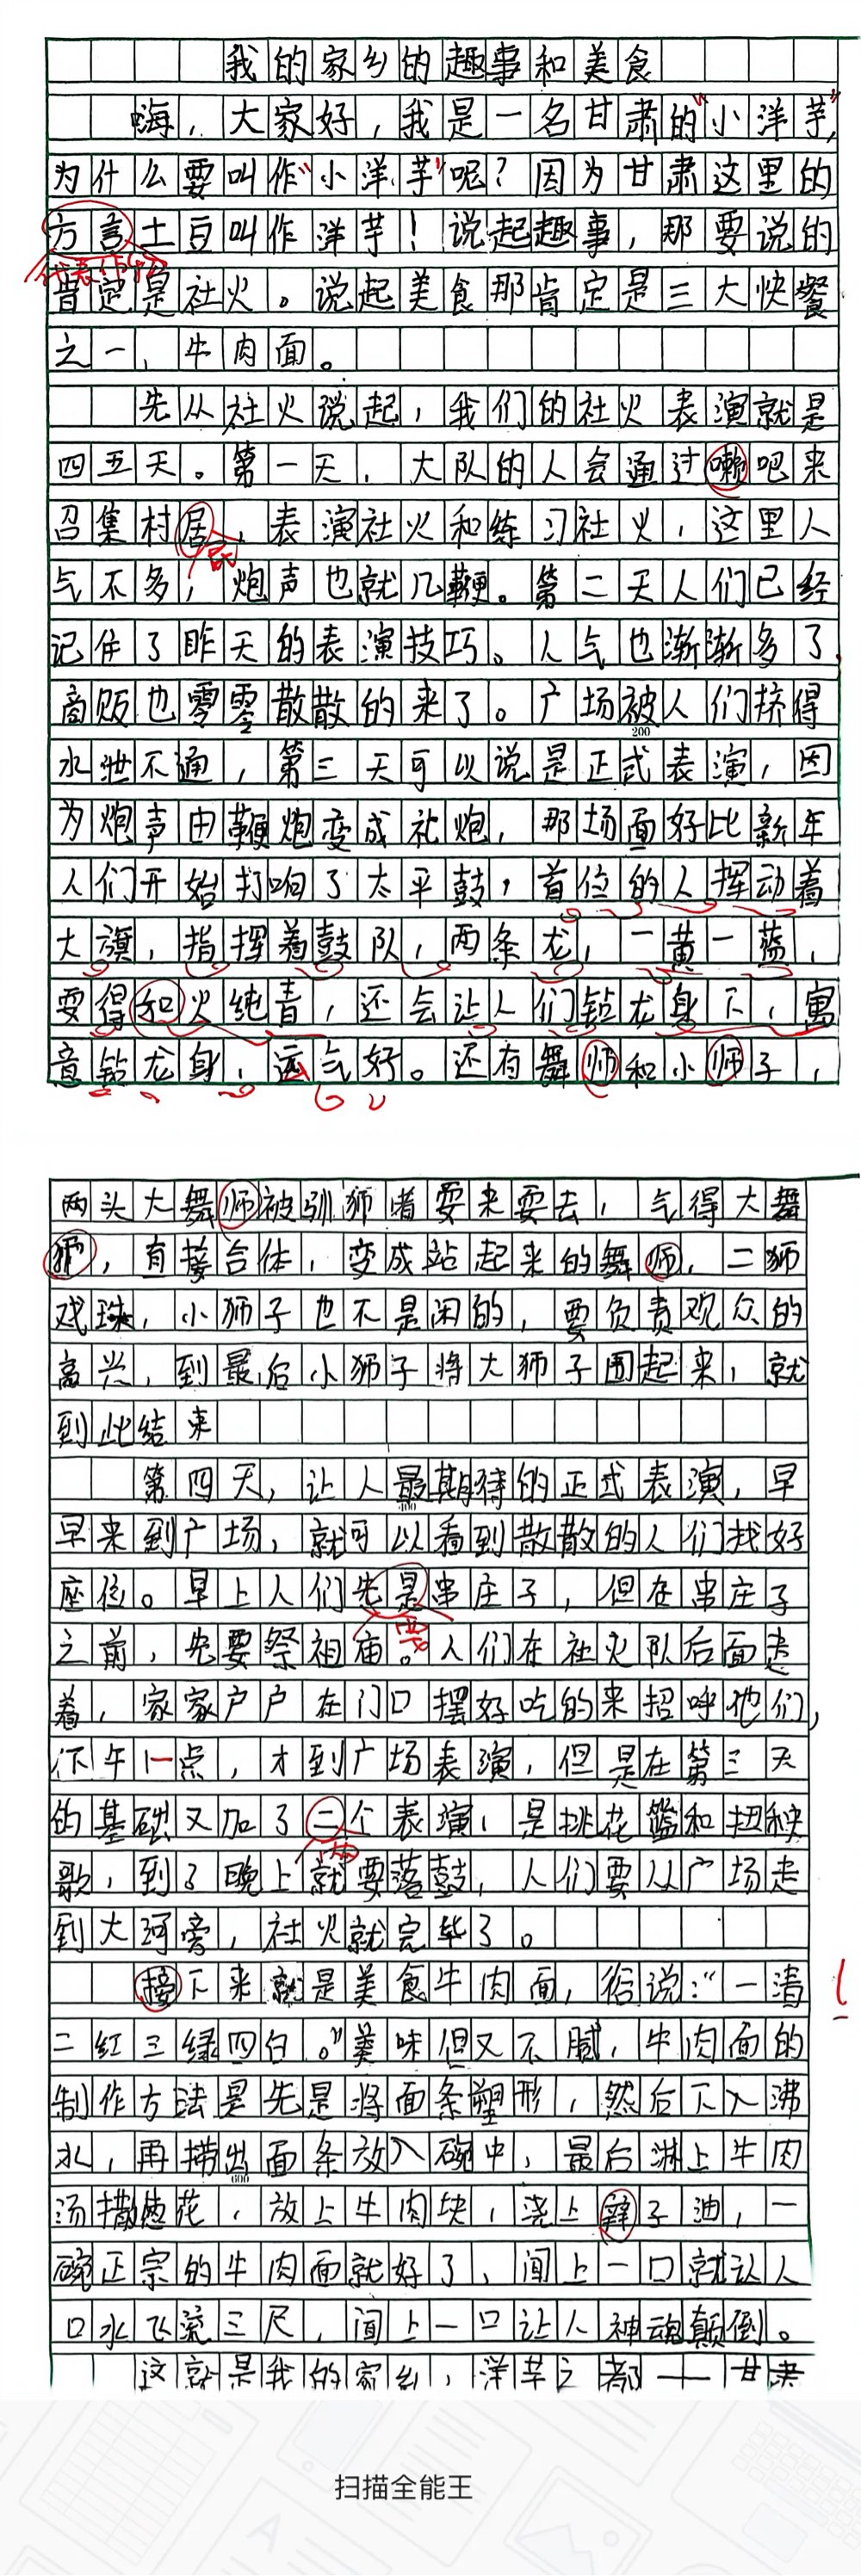 我的家乡的趣事和美食
嗨，大家好，我是一名甘肃的“小洋芋”，
为什么要叫作“小洋芋”呢？因为甘肃这里的
方言土豆叫作洋芋！说起趣事，那要说的
肯定是社火。说起美食那肯定是三大快餐
之一，牛肉面。
先从社火说起，我们的社火表演就是
四五天。第一天，大队的人会通过嗽吧来
召集村居，表演社火和练习社火，这里人
气不多，炮声也就几鞭。第二天人们已经
记住了昨天的表演技巧。人气也渐渐多了，
商贩也零零散散的来了。广场被人们挤得
200
水泄不通，第三天可以说是正式表演，因
为炮声由鞭炮变成礼炮，那场面好比新年
人们开始打响了太平鼓，首位的人挥动着
大旗，指挥着鼓队，两条龙，一黄一蓝，
耍得如火纯青，还会让人们钻龙身下，寓
意钻龙身，运气好。还有舞师和小师子，
两头大舞师被驯狮者耍来耍去，气得大舞
狮，直接合体，变成站起来的舞师，二狮
戏珠，小狮子也不是闲的，要负责观众的
高兴，到最后小狮子将大狮子围起来，就
到此结束
第四天，让人最期待的正式表演，早
400
早来到广场，就可以看到散散的人们找好
座位。早上人们先是串庄子，但在串庄子
要
之前，先要祭祖庙。人们在社火队后面走
着，家家户户在门口摆好吃的来招呼他们，
下午一点，才到广场表演，但是在第三天
的基础又加了二个表演，是挑花篮和扭秧
两
歌，到了晚上就要落鼓，人们要从广场走
到大河旁，社火就完毕了。
接下来就是美食牛肉面，俗说：“一清
二红三绿四白。”美味但又不腻，牛肉面的
制作方法是先是将面条塑形，然后下入沸
水，再捞出面条放入碗中，最后淋上牛肉
600
汤撒葱花，放上牛肉块，浇上辞子油，一
碗正宗的牛肉面就好了，闻上一口就让人
口水飞流三尺，闻上一口让人神魂颠倒。
这就是我的家乡，洋芋之都——甘肃
扫描全能王